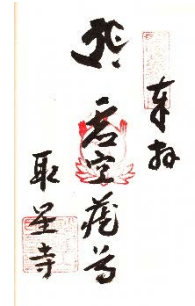 奉拝
虚空蔵尊
取星寺